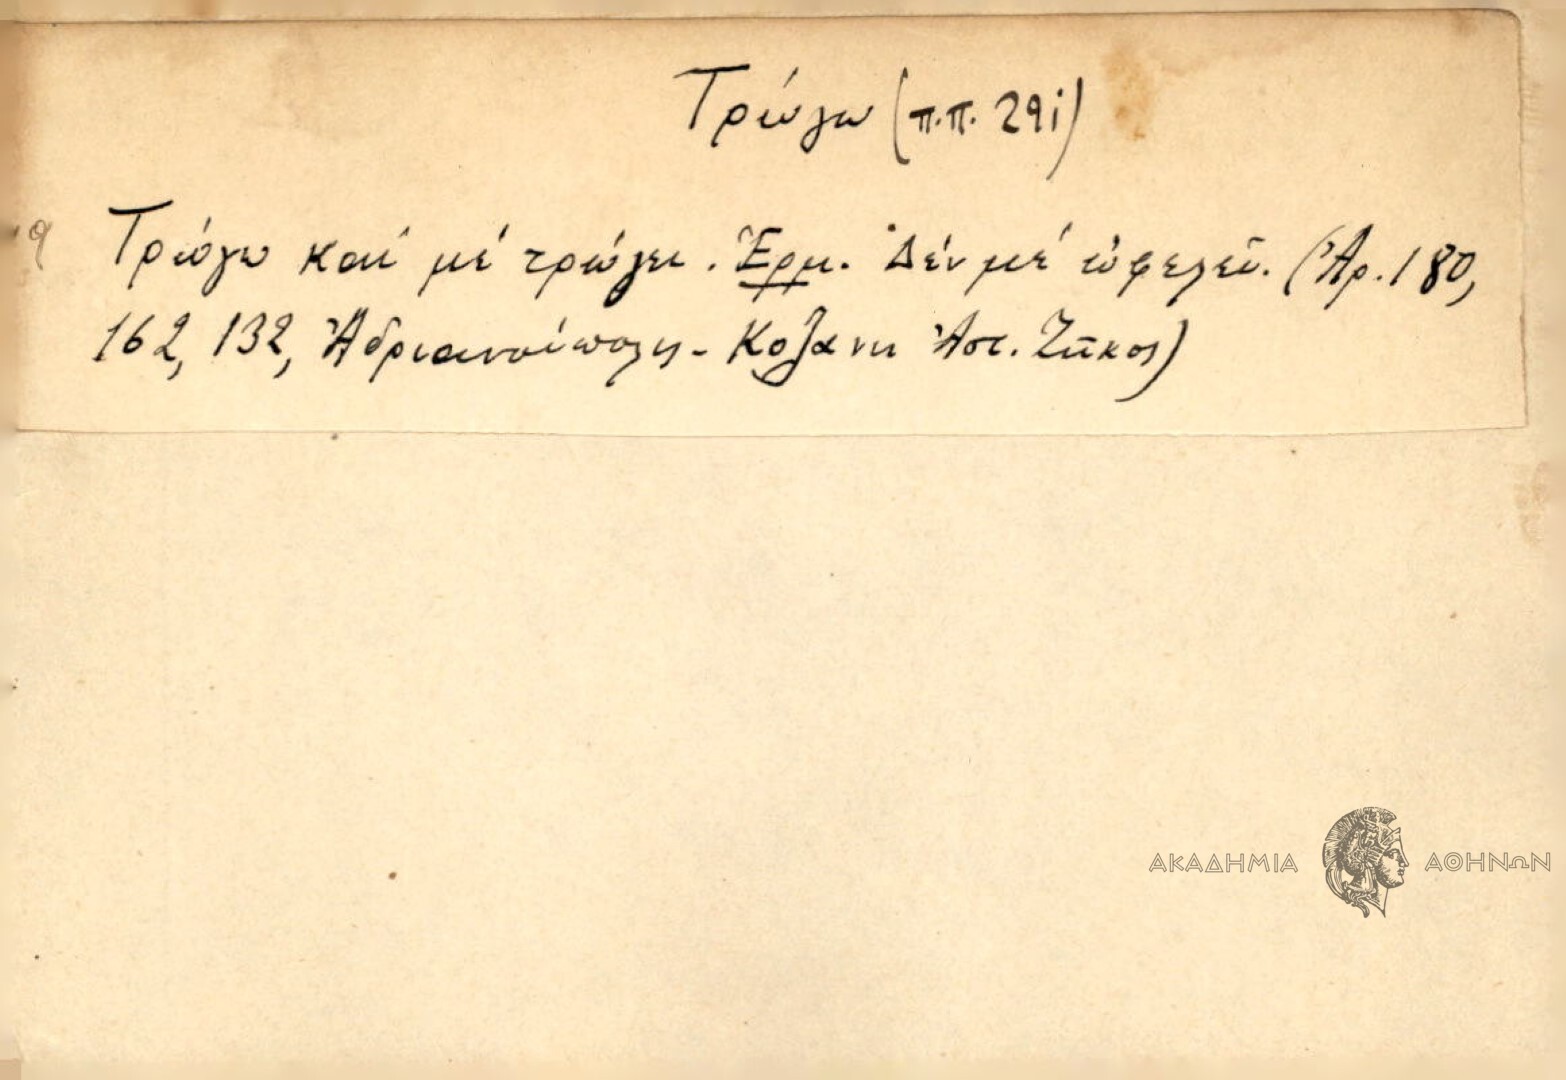 Τρώγω (π.π. 29i)
Τρώγω καί μέ τρώγει. Ἑρμ. Δέν μέ ὠφελεῖ. (Ἀρ. 180,
162, 132, Ἀδριανούπολη - Κοζάνη Ἀστ. Ζῆκος)
ΑΚΑΔΗΜΙΑ ΑΘΗΝΩΝ